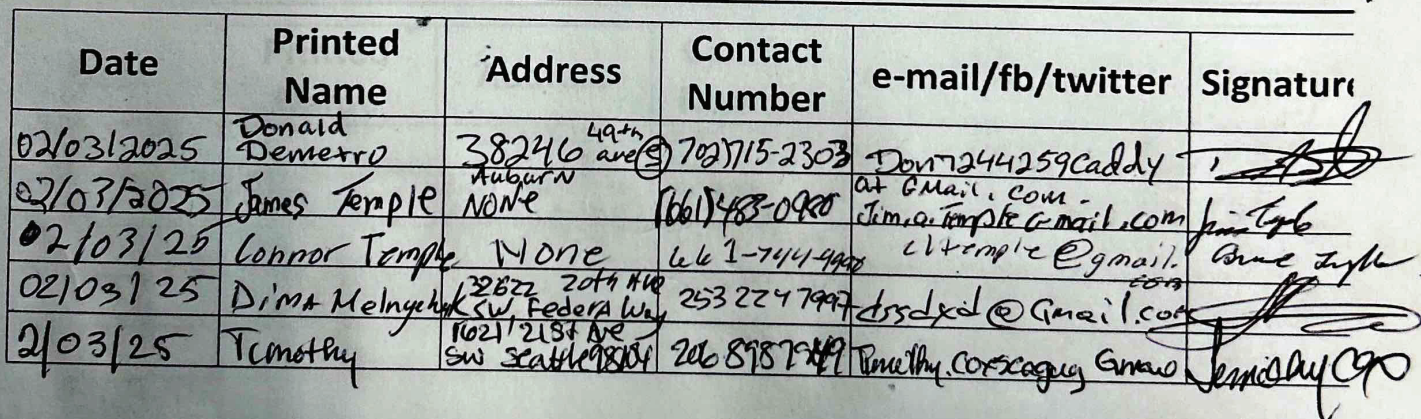 Date Printed Name Address Contact Number e-mail/fb/twitter Signature
02/03/2025 Donald Demetro 38246 49th ave (S) Auburn 702)715-2303 Don7244259Caddy at GMail.com.
02/03/2025 James Temple NONE (661)483-0980 Jim.a.Temple Gmail.com
02/03/25 Connor Temple None 661-744-9990 @gmail.com
02/03/25 Dima Melnychuk 32622 20th Ave SW, Federal Way 253 224 7997 dssdxd@Gmail.com
2/03/25 Timothy 21st Ave SW Seattle 206